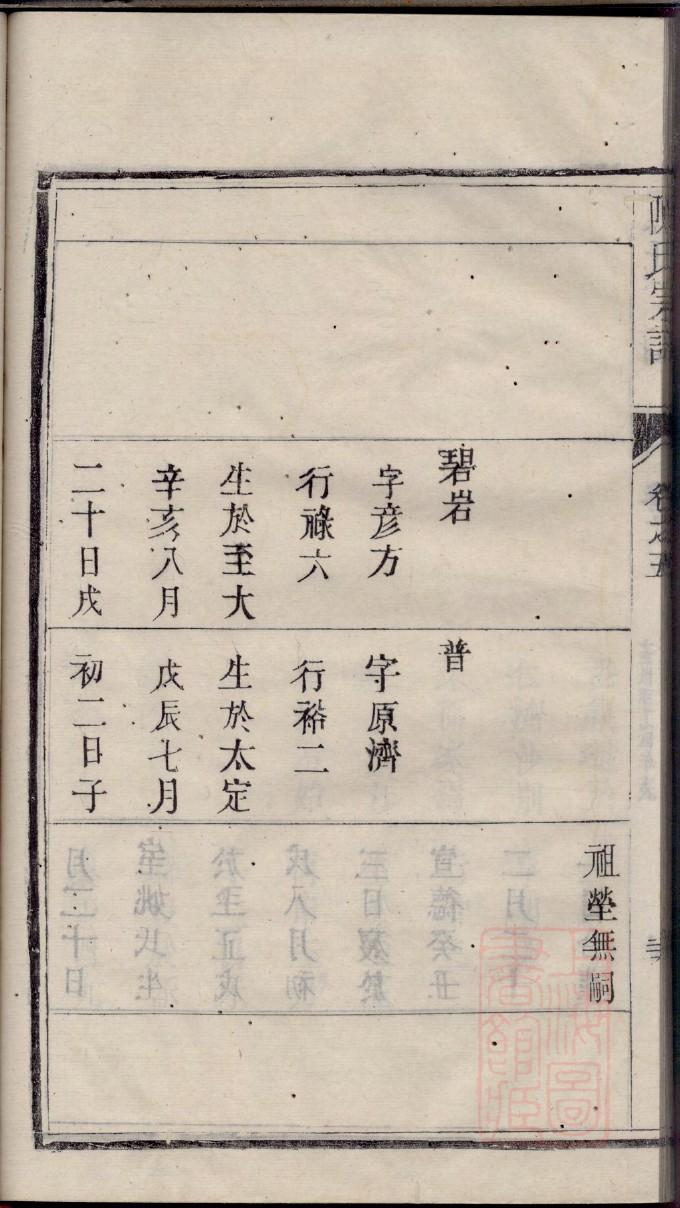 陳氏宗譜
卷之五
碧岩
字彥方
行祿六
生於至大
辛亥八月
二十日戌
普
字原濟
行裕二
生於太定
戊辰七月
初二日子
祖塋無嗣